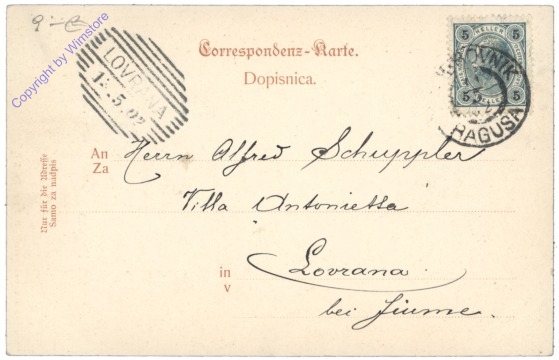 Copyright by Winstore
Correspondenz-Karte.
Dopisnica.
LOVRANA
5.02
5 HELLER 5
5 5
DUBROVNIK
RAGUSA
An Herrn Alfred Schuppler
Za
Villa Antonietta
in Lovrana
v
bei Fiume.
Nur für die Adresse
Samo za nadpis